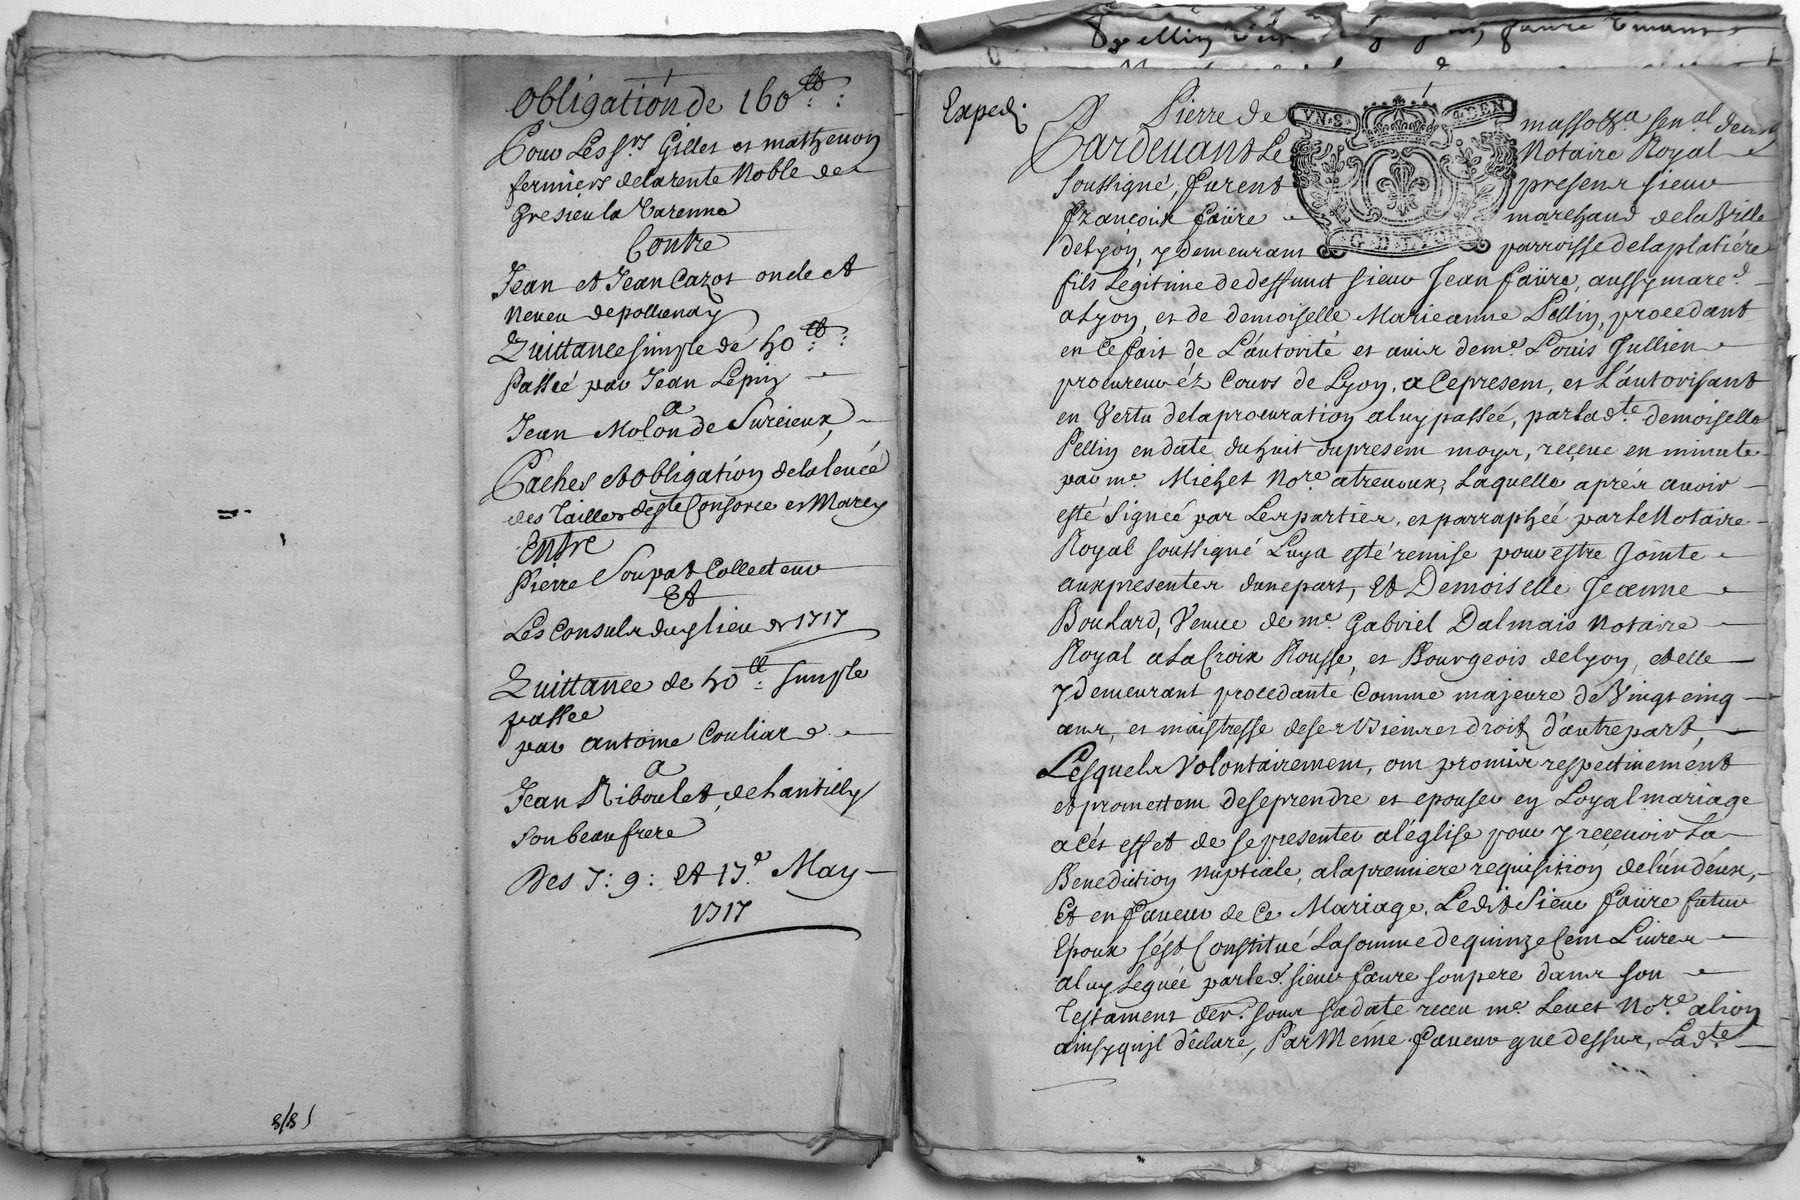 Obligation de 160ᵗᵗ
Pour Les sʳˢ Gilles et mathevon
fermiers de la rente Noble de
Gresieu la Varenne
Contre
Jean et Jean Cazot oncle et
neveu de pollionay
Quittance simple de 50ᵗᵗ
Passée par Jean Lepin
a
Jean Molon de Surcieux
Taches et obligation de la levée
des Tailles de Ste Consorce et Marcy
Entre
Pierre Soupat Collecteur
Et
Les Consuls dud lieu de 1717
Quittance de 50ᵗᵗ simple
passée
par antoine Couliard
a
Jean Riboulet de Lantilly
Son beau frere
Des 7: 9: Et 17ᵉ May
1717
8/81
Exped:
Pierre de
massotza senal de
Pardevant Le Notaire Royal
Soussigné, furent present sieur
françois faure marchand de la Ville
de Lyon, y demeurant parroisse de la platiére
fils Legitime de deffunt sieur Jean faure, aussy marcᵈ
a Lyon, et de demoiselle Marieanne Pellin, procedant
en ce fait de L'autorité et avis de mᵉ Louis Jullien
procureur éz Cours de Lyon, a ce present, et L'autorisant
en Vertu de la procuration a luy passée, par la dᵗᵉ demoiselle
Pellin en date du huit du present moys, reçeue en minute
par mᵉ Michet Noʳᵉ a trevoux, Laquelle aprés avoir
esté Signeé par Les parties, et parrapheé par le Notaire
Royal soussigné Luy a esté remise pour estre Jointe
aux presentes d'une part, Et Demoiselle Jeanne
Boulard, Veuve de mᵉ Gabriel Dalmais Notaire
Royal a La Croix Rousse, et Bourgeois de Lyon, et elle
y demeurant procedante comme majeure de Vingt cinq
ans, et maistresse de ses Biens et droits d'autre part,
Lesquels Volontairement, ont promis respectivement
et promettent de se prendre et epouser en Loyal mariage
a cés effet de se presenter a l'église pour y recevoir La
Benediction Nuptiale, a la premiere requisition de l'un d'eux,
Et en faveur de Ce Mariage, Ledit Sieur faure futur
Epoux s'ést Constitué La somme de quinze Cent Livres
a luy Leguée par led. sieur faure son pere dans son
Testament der. sous sa date receu mᵉ Levet Noʳᵉ a lion
ainsy qu'il déclare, Par Méme faveur que dessus, La dᵗᵉ